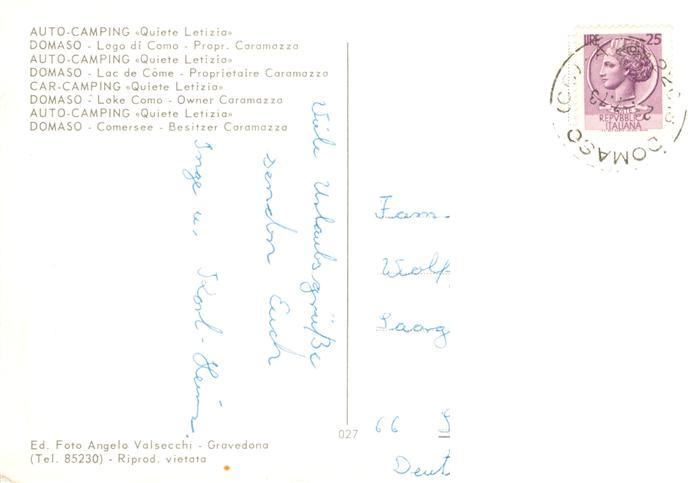 AUTO-CAMPING «Quiete Letizia»
DOMASO - Lago di Como - Propr. Caramazza
AUTO-CAMPING «Quiete Letizia»
DOMASO - Lac de Côme - Proprietaire Caramazza
CAR-CAMPING «Quiete Letizia»
DOMASO - Lake Como - Owner Caramazza
AUTO-CAMPING «Quiete Letizia»
DOMASO - Comersee - Besitzer Caramazza
Viele Urlaubsgrüße
senden Euch
Inge u. Karl-Heinz
Ed. Foto Angelo Valsecchi - Gravedona
(Tel. 85230) - Riprod. vietata
027
LIRE 25
REPVBBLICA
ITALIANA
DOMASO (CO)
Fam.
Wolf
Saarg
66 S
Deut